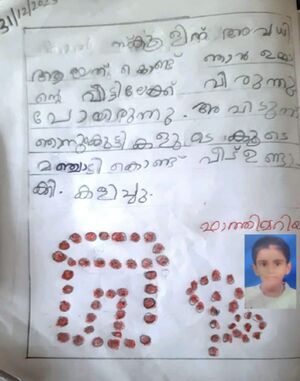 31/12/202
സ്കൂളിന് അവധി
ആയത് കൊണ്ട് ഞാൻ
ന്റെ വീട്ടിലേക്ക് വിരുന്നു
പോയിരുന്നു. അവിടുന്ന്
ഞാനുംകുട്ടികളുടെ കൂടെ
മഞ്ചാടി കൊണ്ട് വീട് ഉണ്ടാ
ക്കി. കളിച്ചു.
ഫാത്തിമറിയ